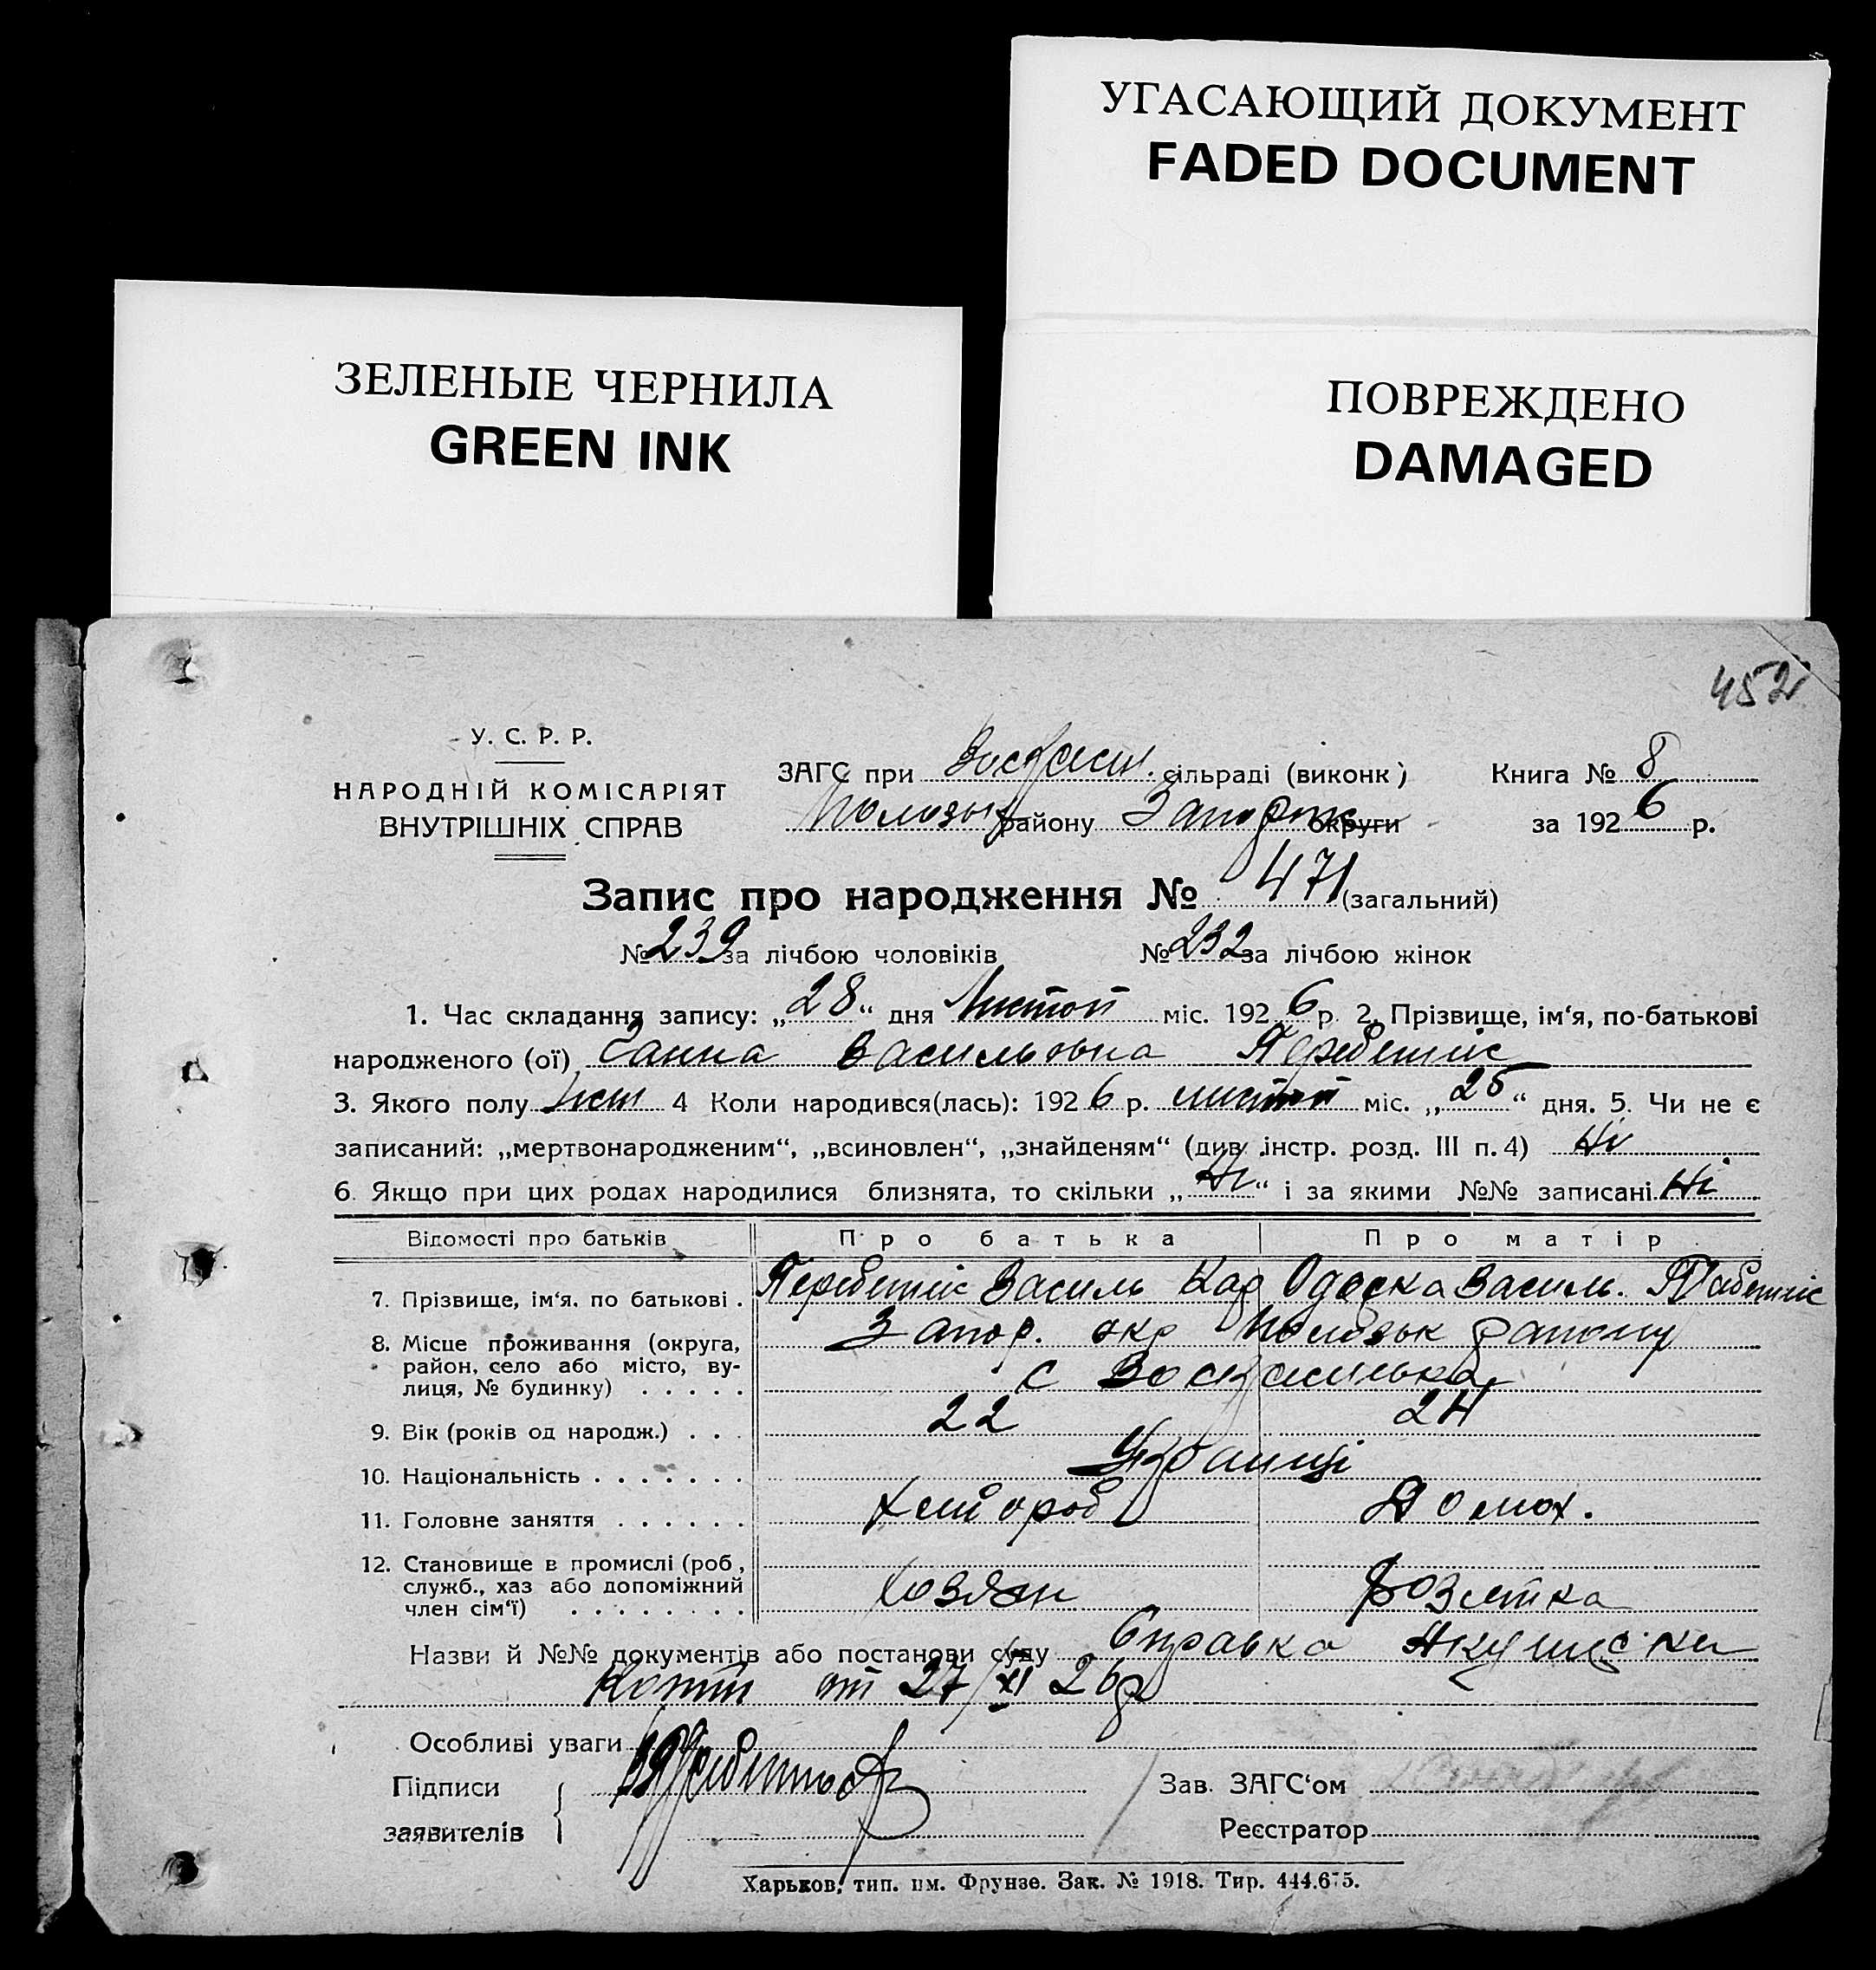 УГАСАЮЩИЙ ДОКУМЕНТ
FADED DOCUMENT
ЗЕЛЕНЫЕ ЧЕРНИЛА
GREEN INK
ПОВРЕЖДЕНО
DAMAGED
452
У. С. Р. Р.
НАРОДНІЙ КОМІСАРІЯТ
ВНУТРІШНІХ СПРАВ
ЗАГС при сільраді (виконк) Книга № 8
району Запоріж округи за 1926 р.
Запис про народження № 471 (загальний)
№ 239 за лічбою чоловіків № 232 за лічбою жінок
1. Час складання запису: „28“ дня Листоп міс. 1926 р. 2. Прізвище, ім‘я, по-батькові
народженого (ої) Ганна Васильовна
3. Якого полу жін 4 Коли народився(лась): 1926 р. листоп міс. „25“ дня. 5. Чи не є
записаний: „мертвонародженим“, „всиновлен“, „знайденям“ (див. інстр. розд. III п. 4) Ні
6. Якщо при цих родах народилися близнята, то скільки „Ні“ і за якими №№ записані Ні
Відомості про батьків Про батька Про матір
7. Прізвище, ім‘я, по батькові . Василь Одарка Василь.
8. Місце проживання (округа, район, село або місто, вулиця, № будинку) . . . . . Запор. окр Пологськ району
с Воскресенька
9. Вік (років од народж.) . . . 22 24
10. Національність . . . . . . . Українці
11. Головне заняття . . . . . . Хлібороб Домох.
12. Становище в промислі (роб, служб., хаз або допоміжний член сім‘ї) . . . . . . . . Хозяїн
Назви й №№ документів або постанови суду Справка Акушерки
от 27/XI 26р
Особливі уваги
Підписи заявителів
Зав. ЗАГС‘ом
Реєстратор
Харьков, тип. им. Фрунзе. Зак. № 1918. Тир. 444.675.